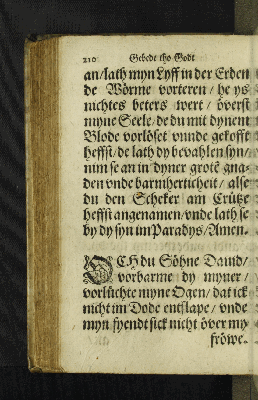 210 Gebedt tho Godt
an/ lath myn Lyff in der Erden
de Wörme vorteren / he ys
nichtes beters wert / överst
myne Seele / de du mit dynem
Blode vorlöset vnnde gekofft
heffst / de lath dy bevahlen syn /
nim se an in dyner grotē gna-
den vnde barmherticheit / alse
du den Scheker am Crütze
heffst angenamen / vnde lath se
by dy syn im Paradys / Amen.
OCH du Söhne Dauid /
vorbarme dy myner /
vorlüchte myne Ogen / dat ick
nicht im Dode entslape / vnde
myn fyendt sick nicht över my
fröwe.